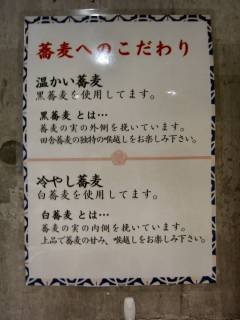 蕎麦へのこだわり
温かい蕎麦
黒蕎麦を使用してます。
黒蕎麦とは…
蕎麦の実の外側を挽いています。
田舎蕎麦の独特の喉越しをお楽しみ下さい。
冷やし蕎麦
白蕎麦を使用してます。
白蕎麦とは…
蕎麦の実の内側を挽いています。
上品で蕎麦の甘み、喉越しをお楽しみ下さい。